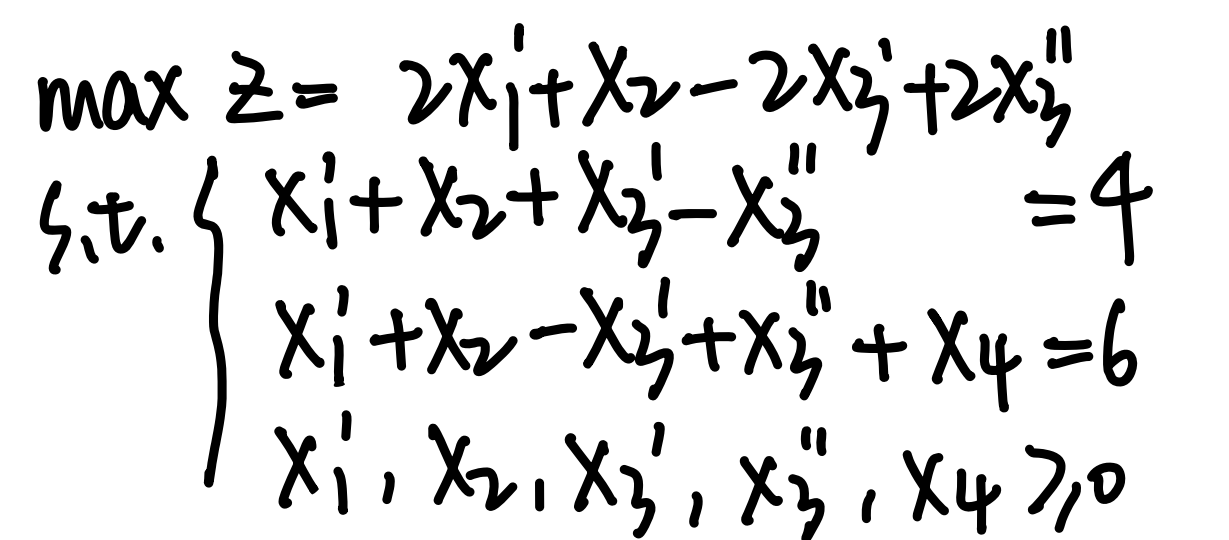 max z = 2x₁' + x₂ - 2x₃' + 2x₃''
s.t. { x₁' + x₂ + x₃' - x₃'' = 4
x₁' + x₂ - x₃' + x₃'' + x₄ = 6
x₁', x₂, x₃', x₃'', x₄ ⩾ 0